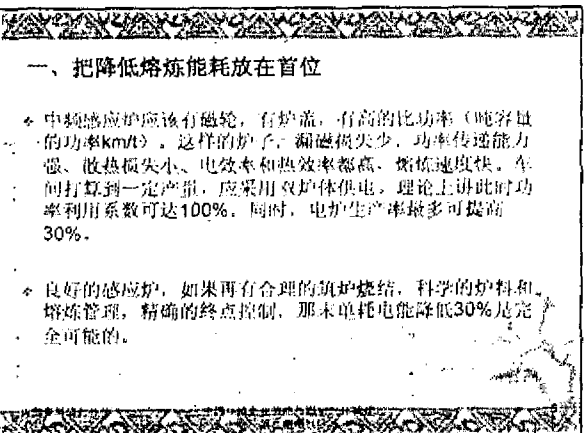 一、把降低熔炼能耗放在首位
中频感应炉应该有磁轮，有炉盖，有高的比功率（吨容量
的功率km/t）。这样的炉子，漏磁损失少，功率传递能力
强、散热损失小、电效率和热效率都高、熔炼速度快。车
间打算到一定产量，应采用双炉体供电，理论上讲此时功
率利用系数可达100%。同时，电炉生产率最多可提高
30%。
良好的感应炉，如果再有合理的筑炉烧结，科学的炉料和
熔炼管理，精确的终点控制，那末单耗电能降低30%是完
全可能的。